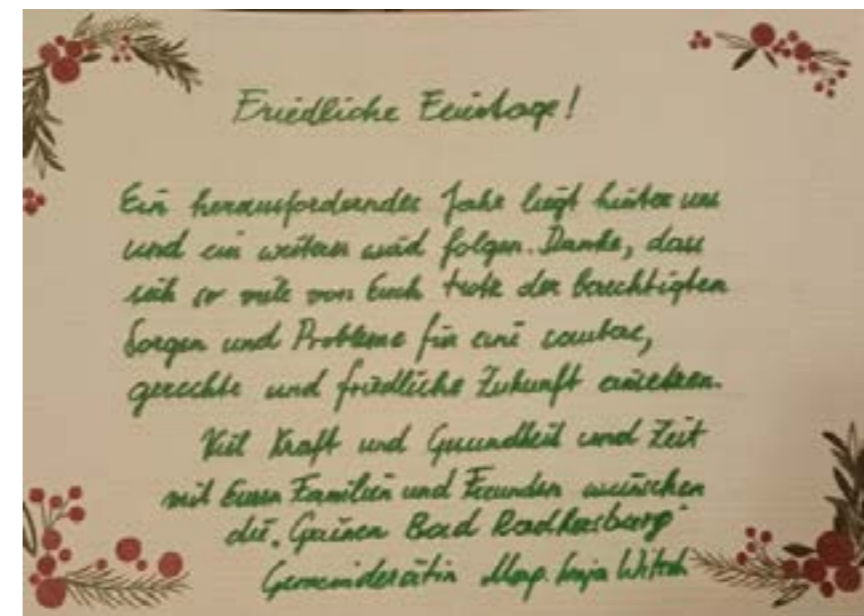 Friedliche Feiertage!
Ein herausforderndes Jahr liegt hinter uns
und ein weiteres wird folgen. Danke, dass
sich so viele von Euch trotz der berechtigten
Sorgen und Probleme für eine saubere,
gerechte und friedliche Zukunft einsetzen.
Viel Kraft und Gesundheit und Zeit
mit Euren Familien und Freunden wünschen
die „Grünen Bad Radkersburg"
Gemeinderätin Mag.